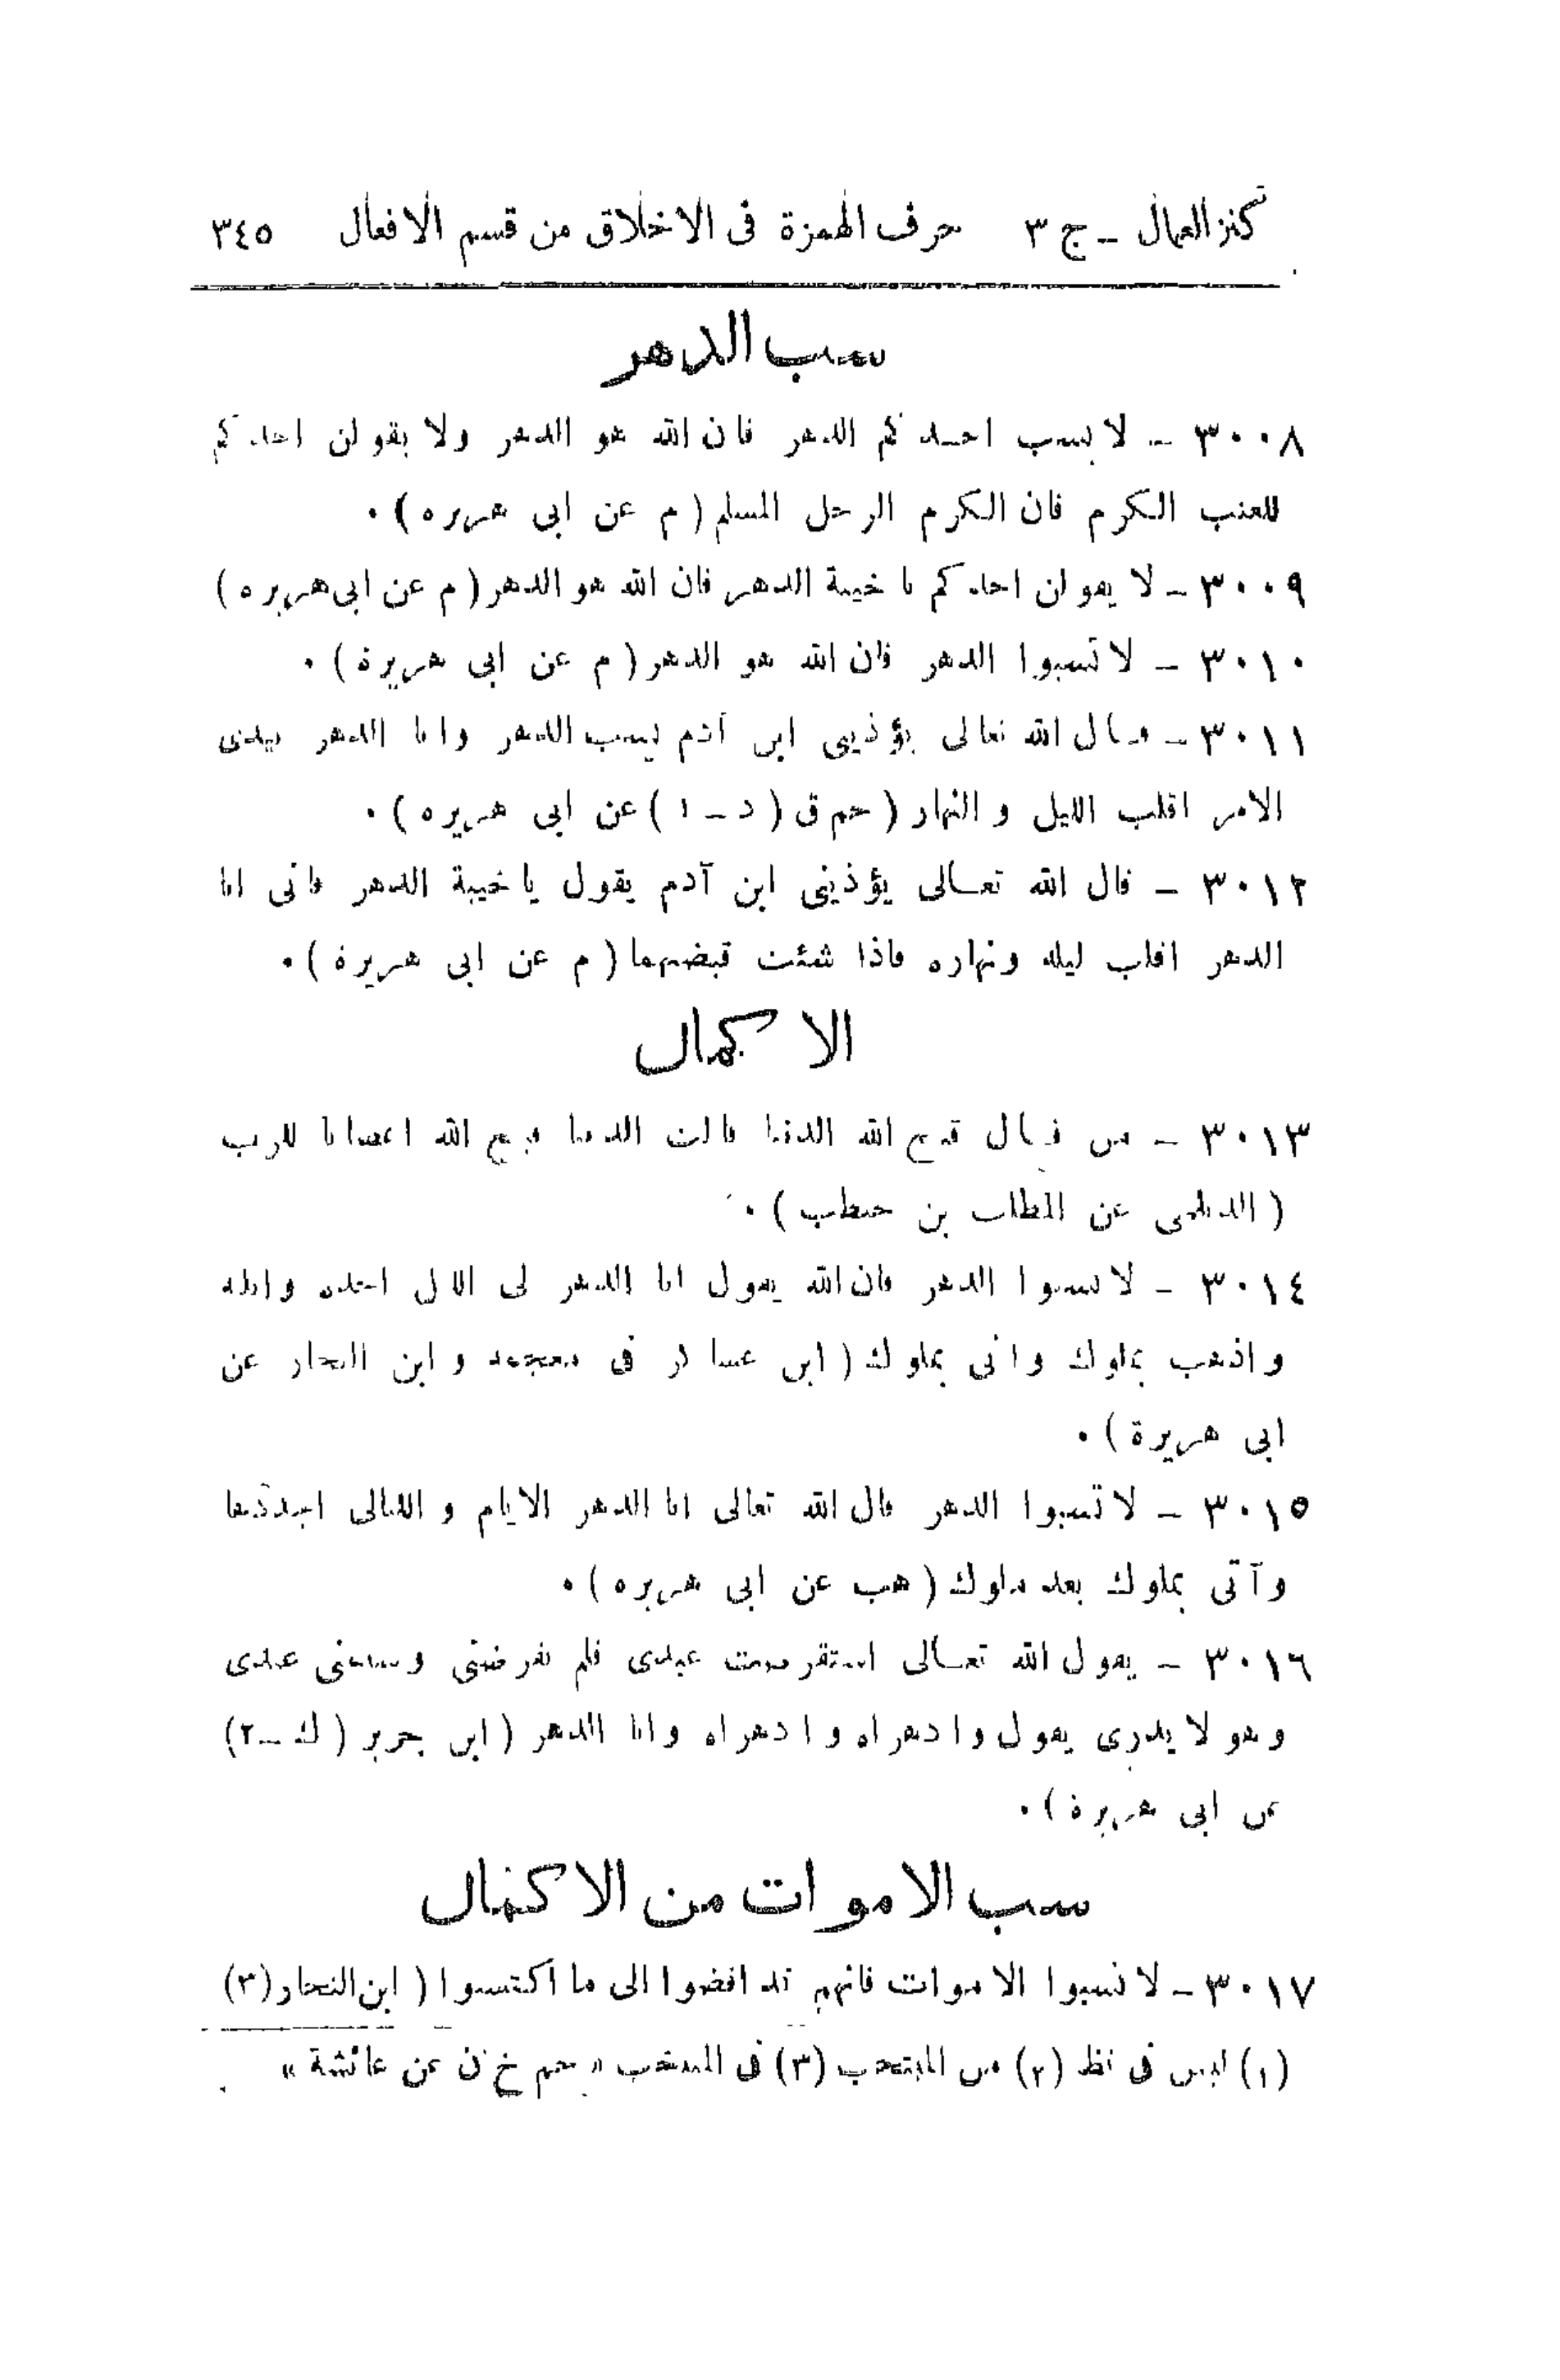 كنز العمال ـ ج ٣ حرف الهمزة فى الاخلاق من قسم الافعال ٣٤٥
سب الدهر
٣٠٠٨ ـ لا يسب احدكم الدهر فان الله هو الدهر ولا يقولن احدكم
للعنب الكرم فان الكرم الرجل المسلم ( م عن ابى هريره ) .
٣٠٠٩ ـ لا يقولن احدكم يا خيبة الدهر فان الله هو الدهر ( م عن ابى هريره )
٣٠١٠ ـ لا تسبوا الدهر فان الله هو الدهر ( م عن ابى هريرة ) .
٣٠١١ ـ قال الله تعالى يؤذينى ابن آدم يسب الدهر وانا الدهر بيدى
الامر اقلب الليل و النهار ( حم ق ( د ـ ١ ) عن ابى هريره ) .
٣٠١٢ ـ قال الله تعالى يؤذينى ابن آدم يقول يا خيبة الدهر فانى انا
الدهر اقلب ليله ونهاره فاذا شئت قبضهما ( م عن ابى هريرة ) .
الاكمال
٣٠١٣ ـ من قال قبح الله الدنيا قالت الدنيا قبح الله اعصانا للرب
( الديلمى عن المطلب بن حنطب ) .
٣٠١٤ ـ لا تسبوا الدهر فان الله يقول انا الدهر لى الليل اجده وابليه
واذهب بملوك وآتى بملوك ( ابن عساكر فى معجمه و ابن النجار عن
ابى هريرة ) .
٣٠١٥ ـ لا تسبوا الدهر قال الله تعالى انا الدهر الايام و الليالى اجددها
وآتى بملوك بعد ملوك ( هب عن ابى هريره ) .
٣٠١٦ ـ يقول الله تعالى استقرضت عبدى فلم يقرضنى وسبنى عبدى
وهو لا يدرى يقول وادهراه وادهراه وانا الدهر ( ابن جرير ( ك ـ ٢ )
عن ابى هريرة ) .
سب الاموات من الاكمال
٣٠١٧ ـ لا تسبوا الاموات فانهم قد افضوا الى ما اكتسبوا ( ابن النجار (٣)
(١) ليس فى نظ (٢) من المنتخب (٣) فى المنتخب « حم خ ن عن عائشة »